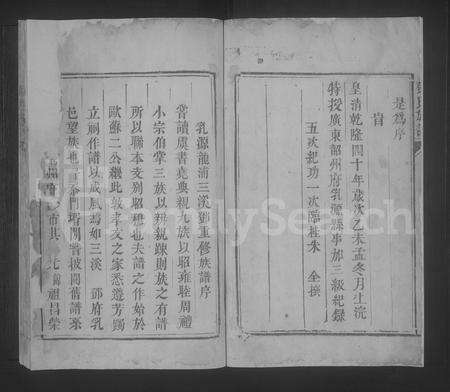 是為序
旹
皇清乾隆四十年歲次乙未孟冬月上浣
特授廣東韶州府乳源縣事加三級紀錄
五次紀功一次臨桂朱 全撰
乳源龍浦三溪鄧重修族譜序
嘗讀虞書堯典親九族以昭雍睦周禮
小宗伯掌三族以辨親疎則族之有譜
所以聯本支別昭穆也夫譜之作始於
歐蘇二公繼此敦孝友之家悉遵芳躅
立祠作譜以成風焉如三溪 鄧府乳
邑望族也 閱舊譜
其 元 祖昌榮
FamilySearch